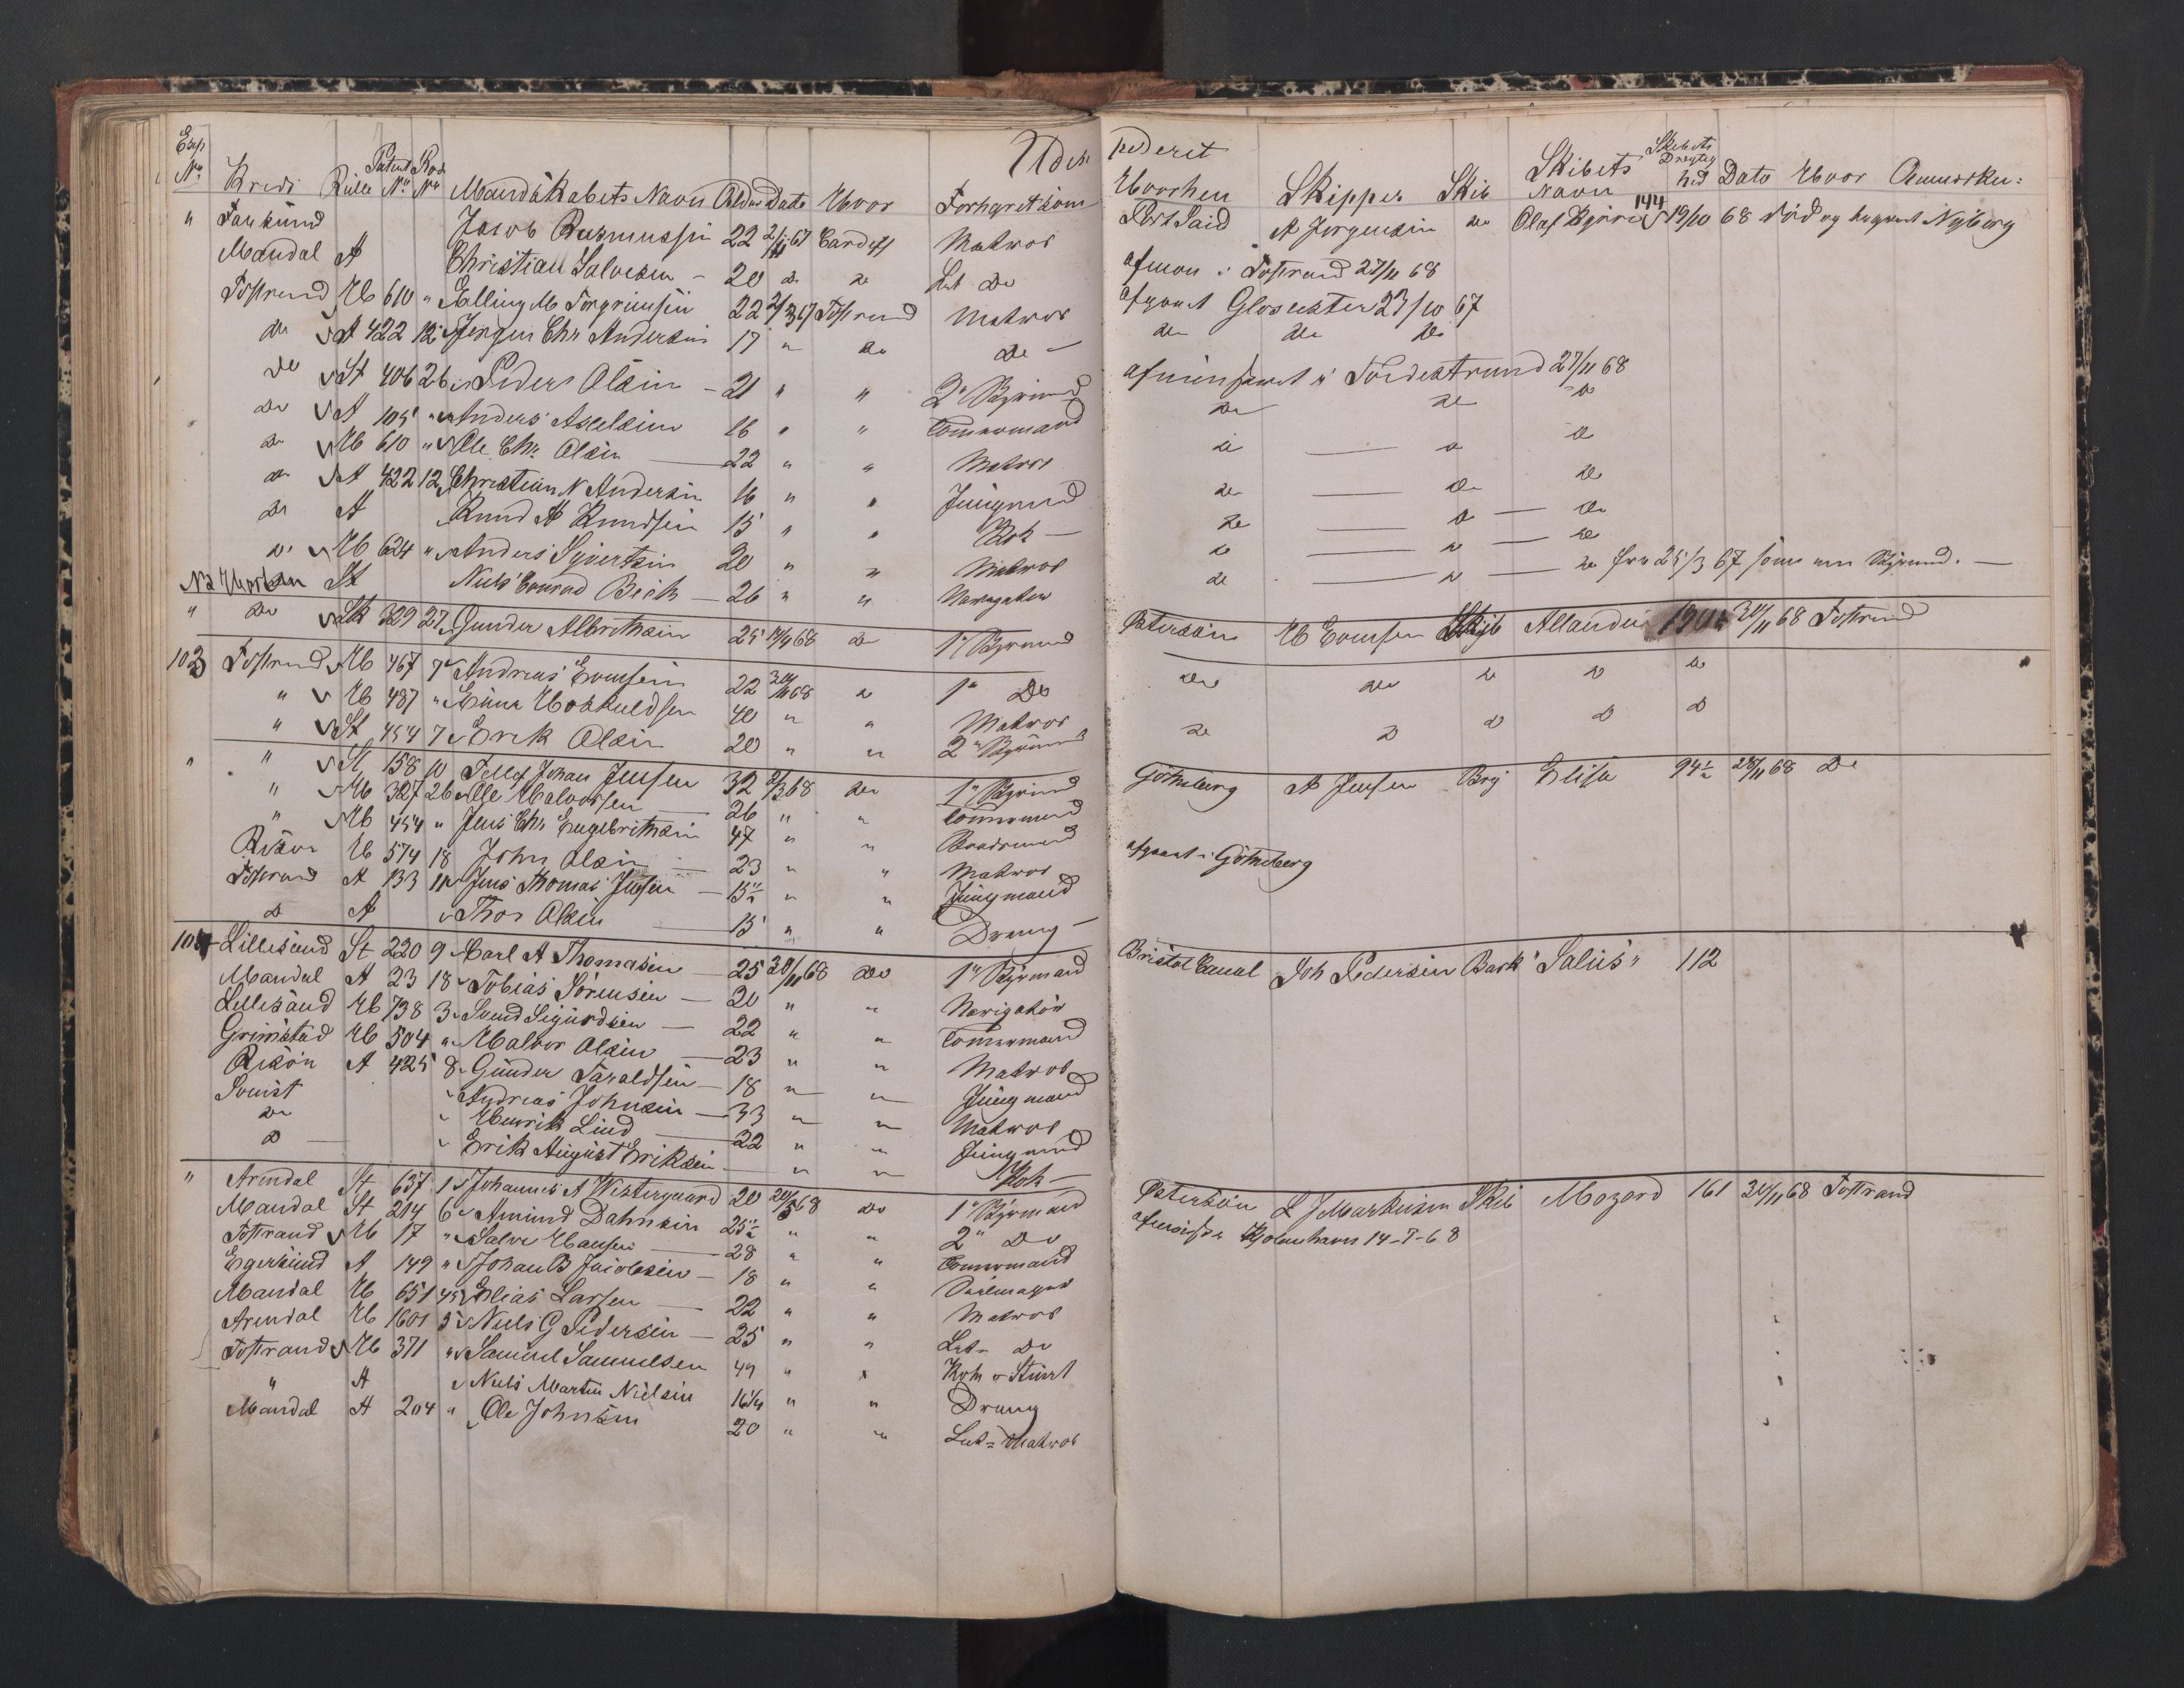 Exp No. Kreds Rulle Patent No. Rode No. Mandskabets Navn Alder Dato Hvor Forhyret som
" Farsund Jacob Rasmussen 22 2/11 67 Cardiff Matros
Mandal A Christian Salvesen – 20 do do Let do
Tostrand Hb 610 " Salling M Torgrimsen 22 2/3 67 Tostrand Matros
do A 422 12 Jørgen Chr Andersen 17 " do do –
do St 406 26 Peder Olsen – 21 " " 2n Styrmand
do A 105 " Anders Axelsen 16 " " Tømmermand
do Hb 610 " Ole Chr. Olsen — 22 " " Matros
do A 422 12 Christian N Andersen 16 " " Jungmand
do A Knud A Knudsen 15 " " Kok –
do Hb 624 " Anders Syvertsen 20 " " Matros
No Horten St Niels Conrad Beck – 26 " " Navigatør
" do St 329 27 Gunder Albretsen 25 14/9 68 do 1n Styrmand
103 Tostrand Hb 467 7 Andreas Evensen 22 30/11 68 do 1n Do
" Hb 487 " Einar Hoskuldsen 40 " " Matros
" St 454 7 Erik Olsen 20 " " 2n Styrmand
" " St 158 10 Tellef Johan Jensen 32 2/3 68 do 1n Styrmand
" Hb 327 26 Ole Halvorsen — 26 " " Tømmermand
" Hb 454 " Jens Chr Engebretsen 47 " " Baadsmand
Risør Hb 574 18 John Olsen – 23 " " Matros
Tostrand A 133 11 Jens Thomas Jensen – 15 1/2 " " Jungmand
do A Thor Olsen — 15 " " Dreng –
104 Lillesand St 220 9 Carl A Thomasen – 25 30/11 68 do 1n Styrmand
Mandal A 23 18 Tobias Sørensen – 20 " " Navigatør
Lillesand Hb 738 3 Svend Sigurdsen – 22 " " Tømmermand
Grimstad Hb 504 " Halvor Olsen — 23 " " Matros
Risør A 425 8 Gunder Taraldsen – 18 " " Jungmand
Svensk Andreas Johnsen – 33 " " Matros
do Henrik Lind — 22 " " Jungmand
do — Erik August Eriksen — " " Kok –
" Arendal St 637 1 Johannes A Westergaard 20 20/5 68 do 1n Styrmand
Mandal St 214 6 Amund Dahnsen 25 1/2 " " 2n Do
Tostrand Hb 17 " Salve Hansen — 28 " " Tømmermand
Egersund A 149 " Johan B Jacobsen – 18 " " Seilmager
Mandal Hb 651 45 Elias Larsen — 22 " " Matros
Arendal Hb 1601 5 Niels G Pedersen – 25 " " Let- Do
Tostrand Hb 371 " Samuel Samuelsen 49 " " Kok & Stuert
" A Niels Martin Nielsen 16 1/4 " " Dreng
Mandal A 204 " Ole Johnsen 20 " " Let = Matros
Hvorhen Skipper Skib Skibets Navn Skibets Drægtighed Dato Hvor Anmærkn:
Port Said A Jørgensen do Olaf Kyrre 144 19/10 68 Nyborg
afmøn i Tostrand 27/11 68
afgaaet Glosester 23/10 67
do do do
afmønstret i Tvedestrand 27/11 68
do do do
do — do do
do — do do
do — do — do
do — do — do
do — do — do fra 25/3 67 som 1n Styrmand. —
Petersøn H Evensen Skib Allandia 190 1/2 30/11 68 Tostrand
do do do do do
do do do do do
Gøtheborg A Jensen Brig Elisa 94 1/2 28/11 68 Do
afgaaet i Gøtheborg
Bristol Canal Joh Pedersen Bark "Saliis" 112
Petersøn L J Markusen Skib Mozard 161 30/11 68 Tostrand
Kjøbenhavn 14-7-68